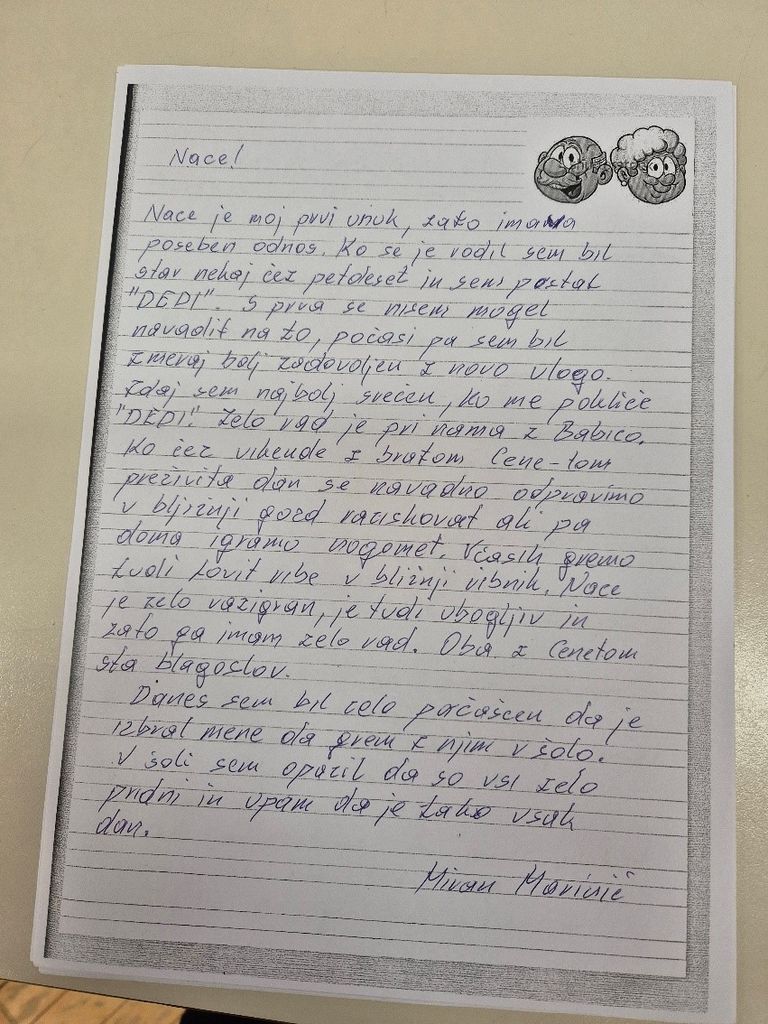 Nace!
Nace je moj prvi vnuk, zato imava
poseben odnos. Ko se je rodil sem bil
star nekaj čez petdeset in sem postal
"DEDI". S prva se nisem mogel
navadit na to, počasi pa sem bil
zmeraj bolj zadovoljen z novo vlogo.
Zdaj sem najbolj srečen, ko me pokliče
"DEDI". Zelo rad je pri nama z Babico.
Ko čez vikende z bratom Cene-tom
preživita dan se navadno odpravimo
v bljižnji gozd raziskovat ali pa
doma igramo nogomet. Včasih gremo
tudi lovit ribe v bližnji ribnik. Nace
je zelo razigran, je tudi ubogljiv in
zato ga imam zelo rad. Oba z Cenetom
sta blagoslov.
Danes sem bil zelo počaščen da je
izbral mene da grem z njim v šolo.
V šoli sem opazil da so vsi zelo
pridni in upam da je tako vsak
dan.
Miran